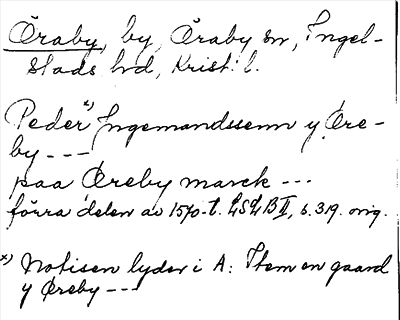 Öraby, by, Öraby sn, Ingel-
stads hd, Krist. l.
Peder x) Ingemandssenn y Øre-
by - - -
paa Øreby marck - - -
förra delen av 1570-t. LSLB II, s. 319. orig.
x) Notisen lyder i A: Item en gaard
y Øreby - - -